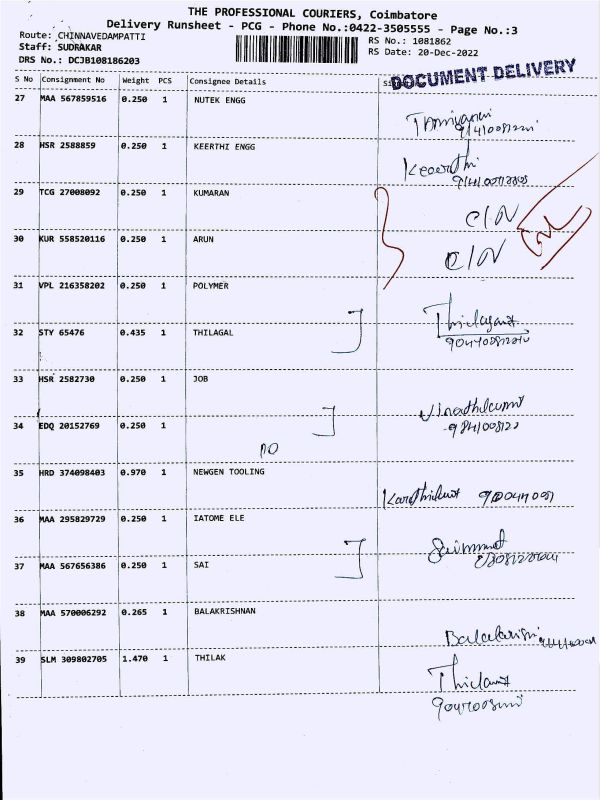 THE PROFESSIONAL COURIERS, Coimbatore
Delivery Runsheet - PCG - Phone No.:0422-3505555 - Page No.:3
Route: CHINNAVEDAMPATTI
RS No.: 1081862
Staff: SUDRAKAR
RS Date: 20-Dec-2022
DRS No.: DCJB108186203
DOCUMENT DELIVERY
S No Consignment No Weight PCS Consignee Details
27 MAA 567859516 0.250 1 NUTEK ENGG
28 HSR 2588859 0.250 1 KEERTHI ENGG
Keerthi
29 TCG 27008092 0.250 1 KUMARAN
C/N
30 KUR 558520116 0.250 1 ARUN
C/N
31 VPL 216358202 0.250 1 POLYMER
32 STY 65476 0.435 1 THILAGAL
33 HSR 2582730 0.250 1 JOB
34 EDQ 20152769 0.250 1
35 HRD 374098403 0.970 1 NEWGEN TOOLING
36 MAA 295829729 0.250 1 IATOME ELE
37 MAA 567656386 0.250 1 SAI
38 MAA 570006292 0.265 1 BALAKRISHNAN
39 SLM 309802705 1.470 1 THILAK